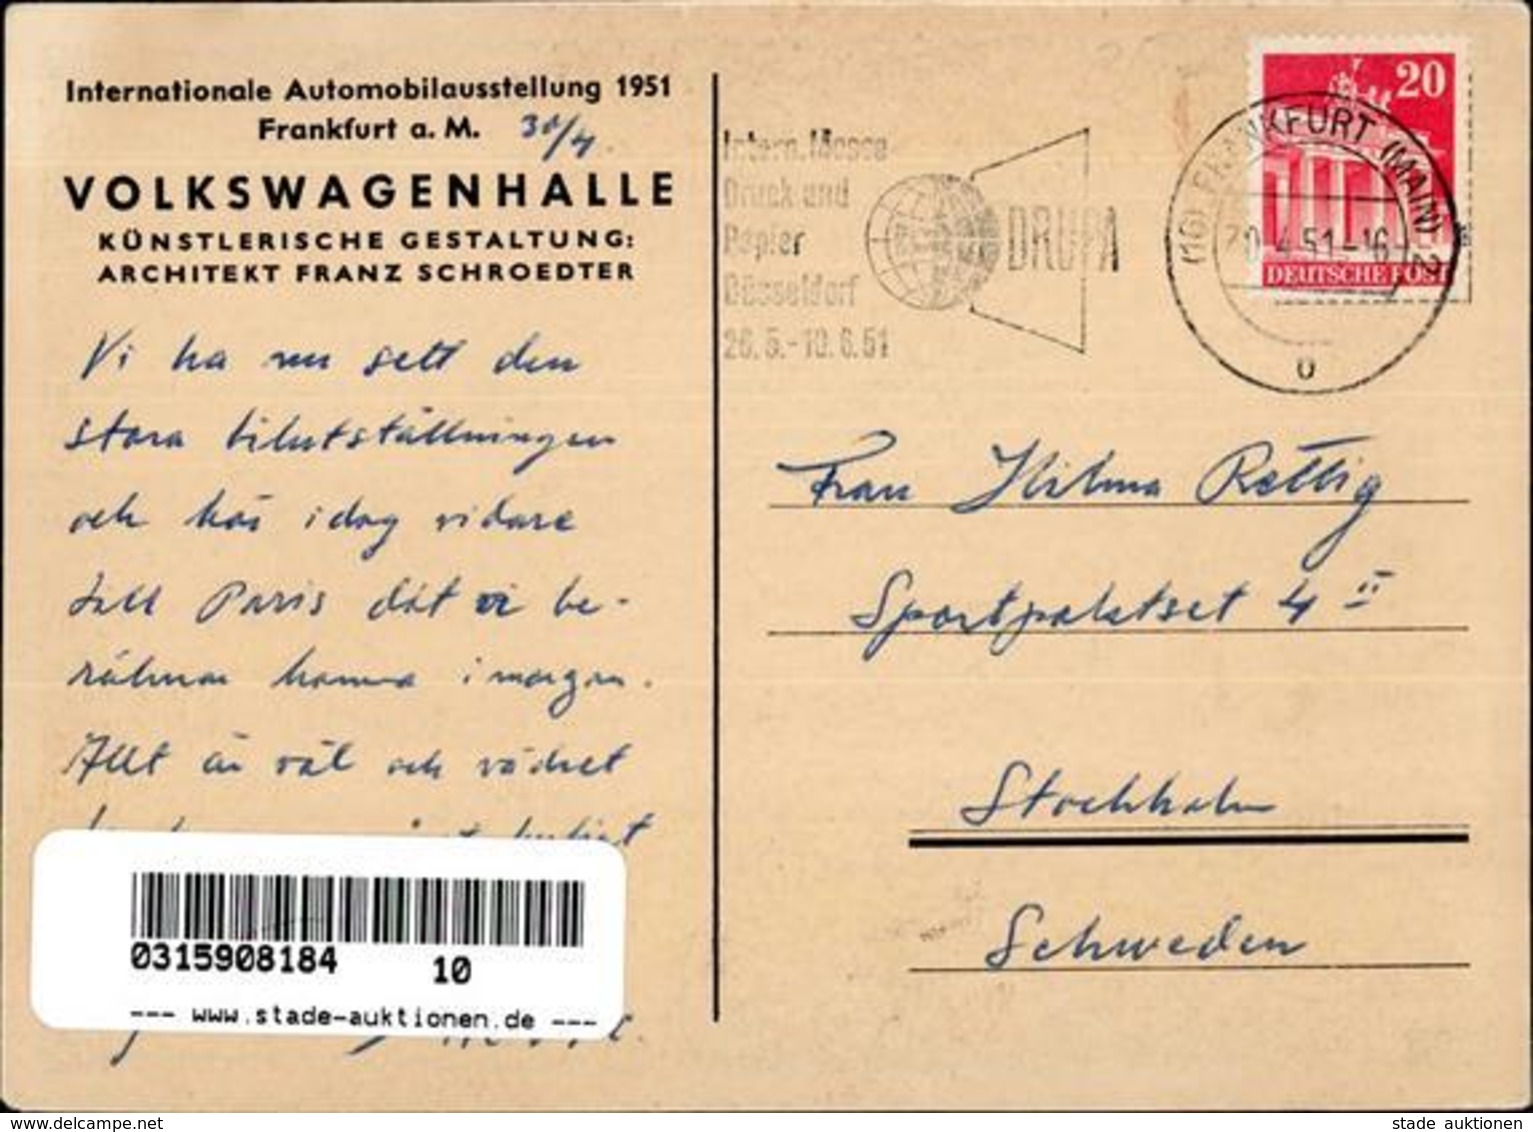 Internationale Automobilausstellung 1951
Frankfurt a. M. 30/4.
VOLKSWAGENHALLE
KÜNSTLERISCHE GESTALTUNG:
ARCHITEKT FRANZ SCHROEDTER
Vi ha nu sett den
stora bilutställningen
och kör idag vidare
till Paris dit vi be-
räknar komma i morgon.
Allt är väl och vädret
0315908184 10
--- www.stade-auktionen.de ---
Intern. Messe
Druck und
Papier
Düsseldorf
26.5.-10.6.51
DRUPA
20
DEUTSCHE POST
(16) FRANKFURT (MAIN) 2
30.4.51-16
Frau Hilma Rettig
Sportpalatset 4 II
Stockholm
Schweden
stade auktionen
www.delcampe.net